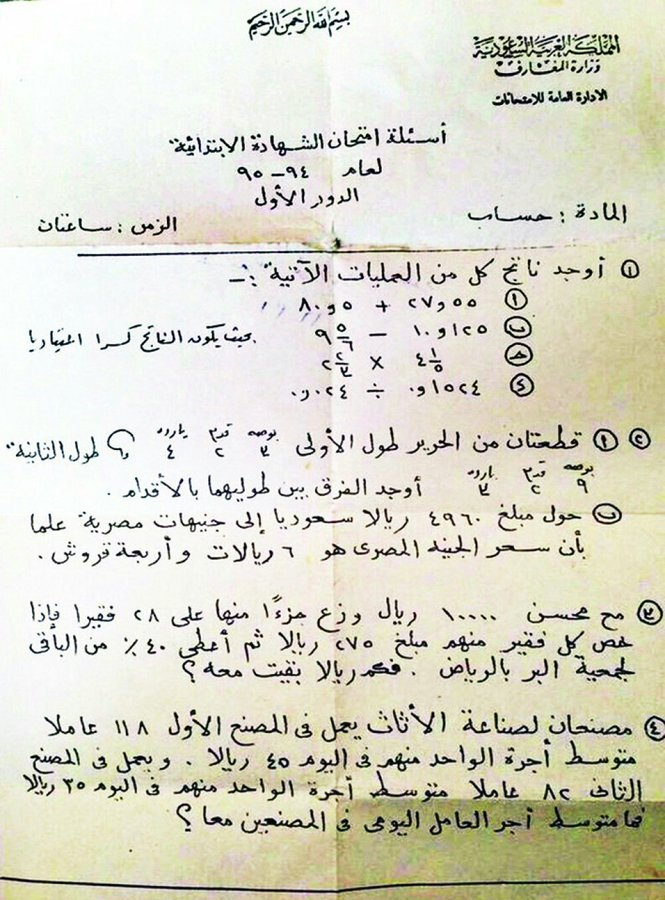 بسم الله الرحمن الرحيم
المملكة العربية السعودية
وزارة المعارف
الادارة العامة للامتحانات
أسئلة امتحان الشهادة الابتدائية
لعام ٩٤ – ٩٥
الدور الأول
المادة : حساب
الزمن : ساعتان
١ أوجد ناتج كل من العمليات الآتية :ـ
أ ٥٥و٢٧ + ٥و٨٠
ب ١٢٥و١٠ – ٩ ٥/٦ بحيث يكون الناتج كسرا اعتياديا
جـ ٤ ١/٥ × ٢ ٢/٣
د ١٥٢٤و٠ ÷ ٠٢٤و٠
٢ أ قطعتان من الحرير طول الأولى ٣ بوصه ٢ قدم ٤ يارده و طول الثانية
٩ بوصه ٢ قدم ٣ يارده أوجد الفرق بين طوليهما بالأقدام .
ب حول مبلغ ٤٩٦٠ ريالا سعوديا إلى جنيهات مصرية علما
بأن سعر الجنيه المصرى هو ٦ ريالات وأربعة قروش .
٣ مع محسن ١٠٠٠٠ ريال وزع جزءًا منها على ٢٨ فقيرا فإذا
خص كل فقير منهم مبلغ ٢٧٥ ريالا ثم أعطى ٤٠ ٪ من الباقى
لجمعية البر بالرياض . فكم ريالا بقيت معه ؟
٤ مصنعان لصناعة الأثاث يعمل فى المصنع الأول ١١٨ عاملا
متوسط أجرة الواحد منهم فى اليوم ٤٥ ريالا . ويعمل فى المصنع
الثانى ٨٢ عاملا متوسط أجرة الواحد منهم فى اليوم ٣٥ ريالا
فما متوسط أجر العامل اليومى فى المصنعين معا ؟